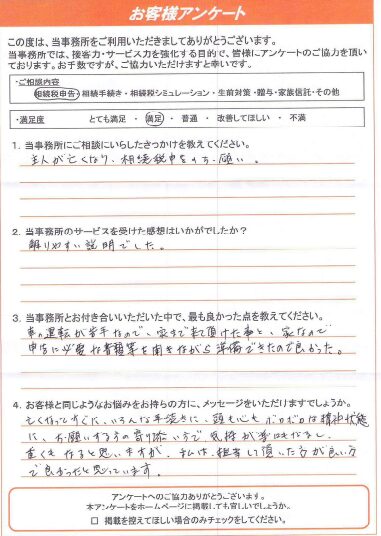 お客様アンケート
この度は、当事務所をご利用いただきましてありがとうございます。
当事務所では、接客力・サービス力を強化する目的で、皆様にアンケートのご協力を頂いて
おります。お手数ですが、ご協力いただけますと幸いです。
・ご相談内容
相続税申告・相続手続き・相続税シミュレーション・生前対策・贈与・家族信託・その他
・満足度 とても満足 ・ 満足 ・ 普通 ・ 改善してほしい ・ 不満
1. 当事務所にご相談にいらしたきっかけを教えてください。
主人が亡くなり、相続税申告のお願い。
2. 当事務所のサービスを受けた感想はいかがでしたか?
解りやすい説明でした。
3. 当事務所とお付き合いいただいた中で、最も良かった点を教えてください。
車の運転が苦手なので、家まで来て頂けた事と、家なので
申告に必要な書類等を聞きながら準備できたので良かった。
4. お客様と同じようなお悩みをお持ちの方に、メッセージをいただけますでしょうか。
亡くなってすぐに、いろんな手続きに、頭も心もボロボロな精神状態
に、お願いする方の寄り添い方で気持が
重くもなると思いますが、私は、担当して頂いた方が良い方
で良かったと思っています。
アンケートへのご協力ありがとうございます。
本アンケートをホームページに掲載しても宜しいでしょうか。
□ 掲載を控えてほしい場合のみチェックをしてください。